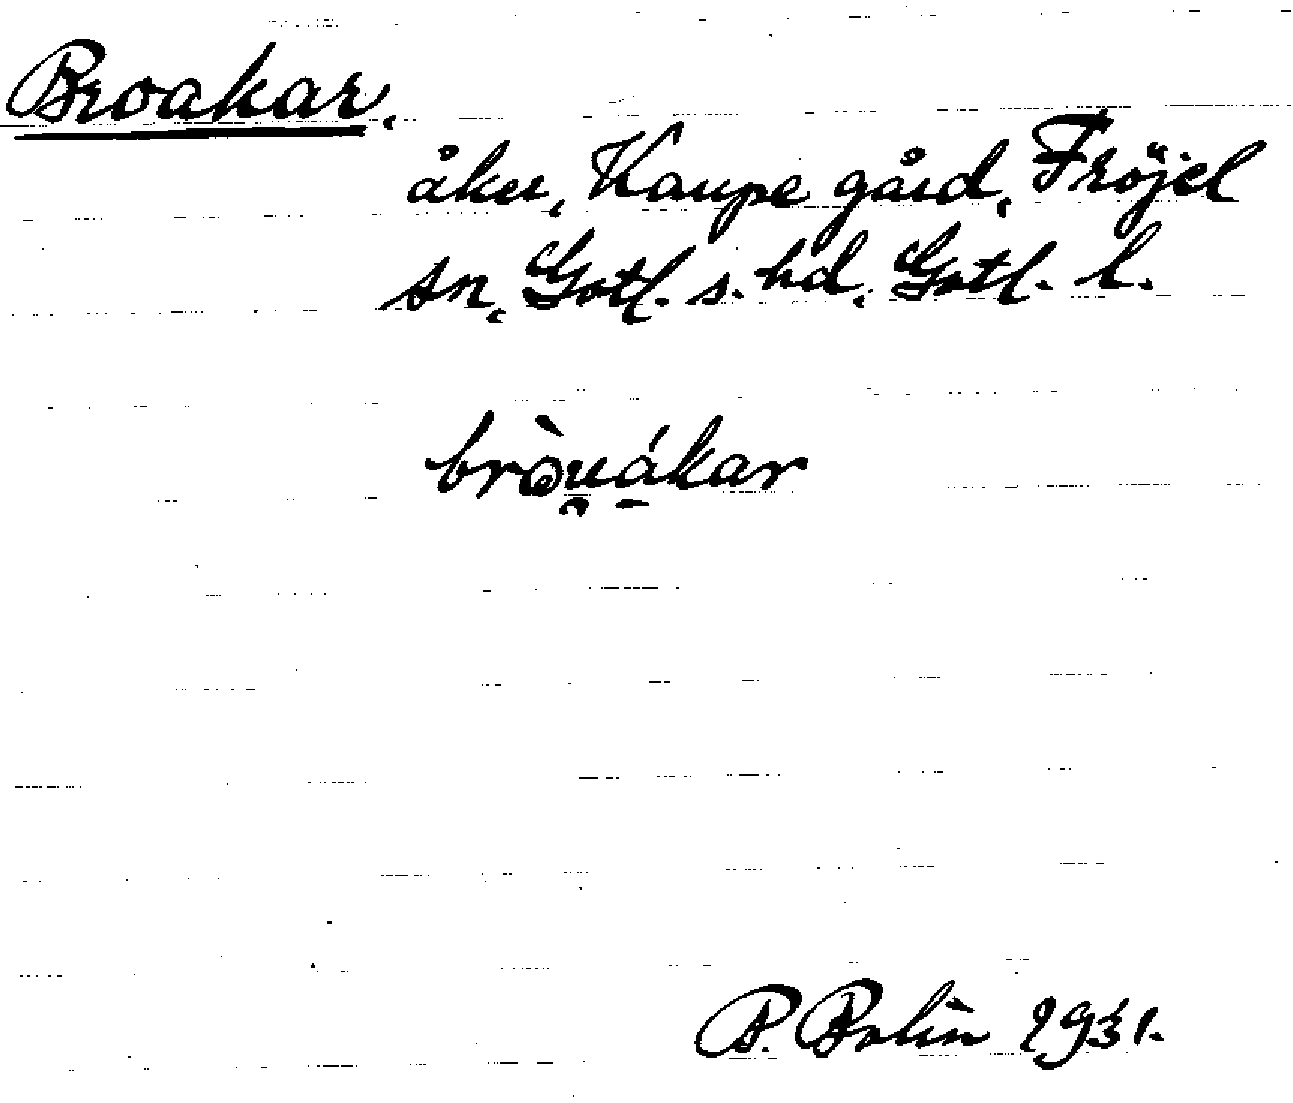 Broakar.
åker, Kaupe gård, Fröjel
sn, Gotl. s. hd, Gotl. l.
bròu̯á̱kar
P. Bolin 1931.